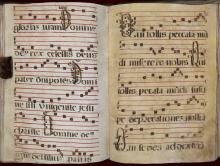 gloriam tuam Domine
deus rex celestis deus
pater omnipotens Domi
ne fili Unigenite Jesu
christe Domine de
us agnus dei filius patris
Qui tollis peccata mũ
di miserere nobis Qui
tollis peccata mũdi sus
cipe deprecationes nostrã
Qui sedes ad dexterã